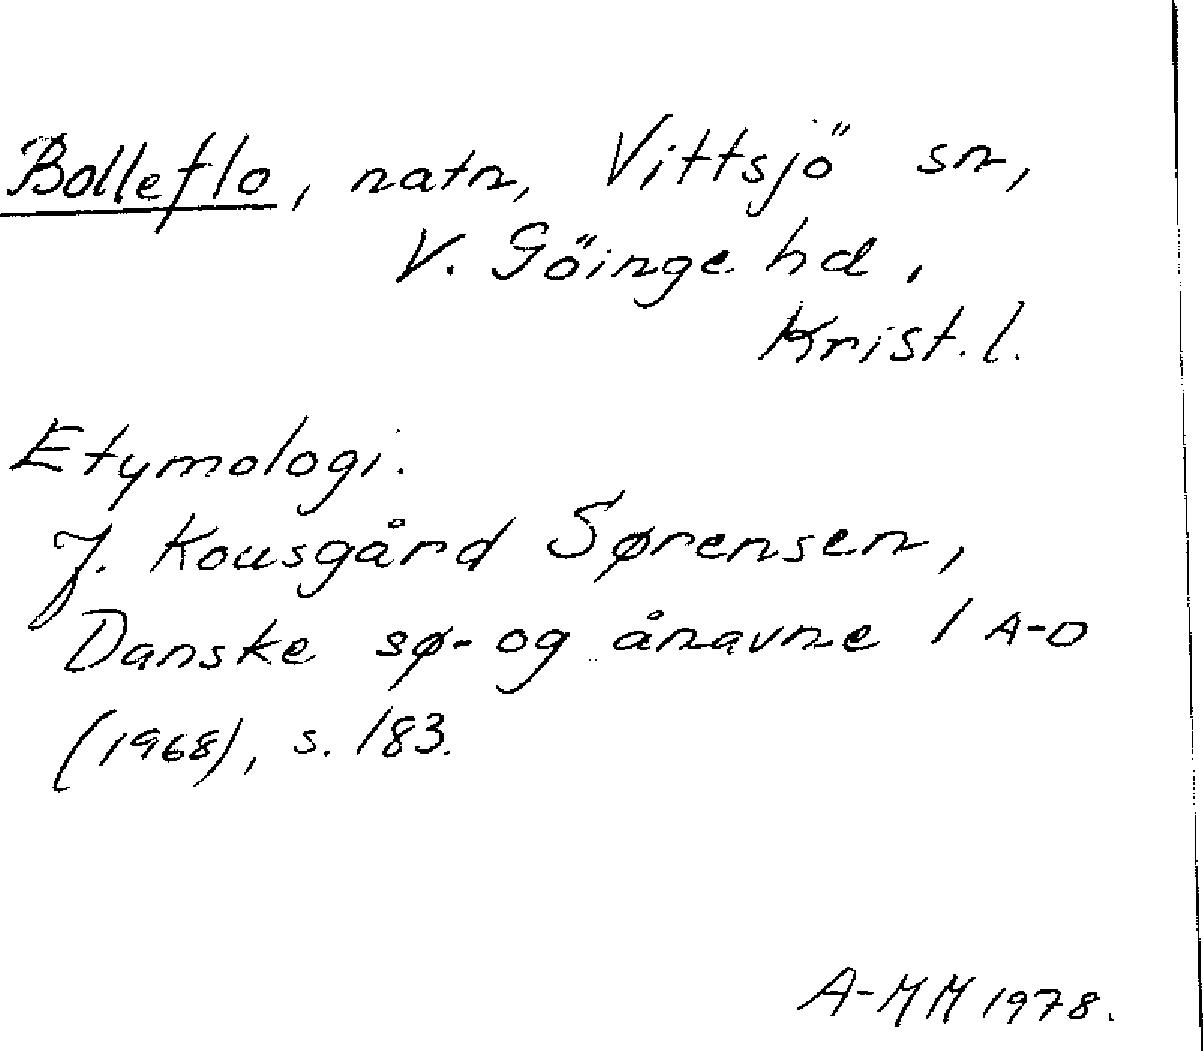 Bolleflo, natn, Vittsjö sn,
V. Göinge hd,
Krist. l.
Etymologi.
J. Kousgård Sørensen,
Danske sø- og ånavne 1 A-D
(1968), s. 183.
A-MM 1978.